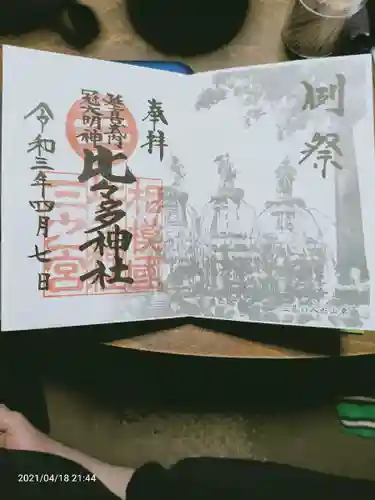 例祭
奉拝
延喜式内
冠大明神
比々多神社
相模國
三之宮
令和三年四月七日
2021/04/18 21:44